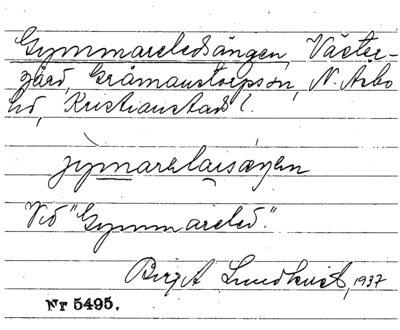 Gymmareledsängen, Väster-
gård, Gråmanstorpssn, N. Åsbo
hd, Kristianstads l.
jy̱marelaısæŋen
Vid "Gymmareled."
Birgit Lundkvist, 1937
Nr 5495.